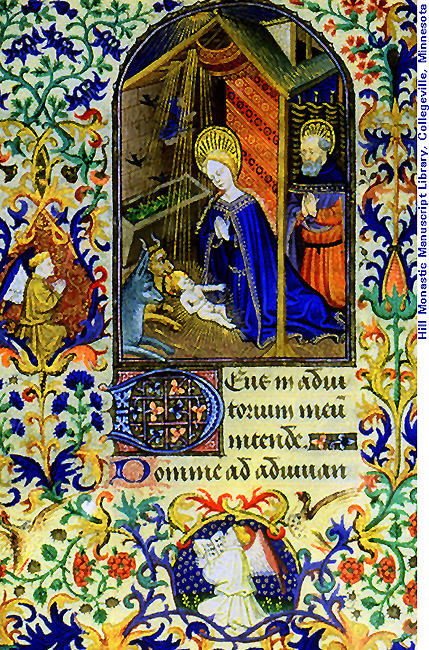 Deus in adiu
torium meū
intende.
Domine ad adiuuan
Hill Monastic Manuscript Library, Collegeville, Minnesota